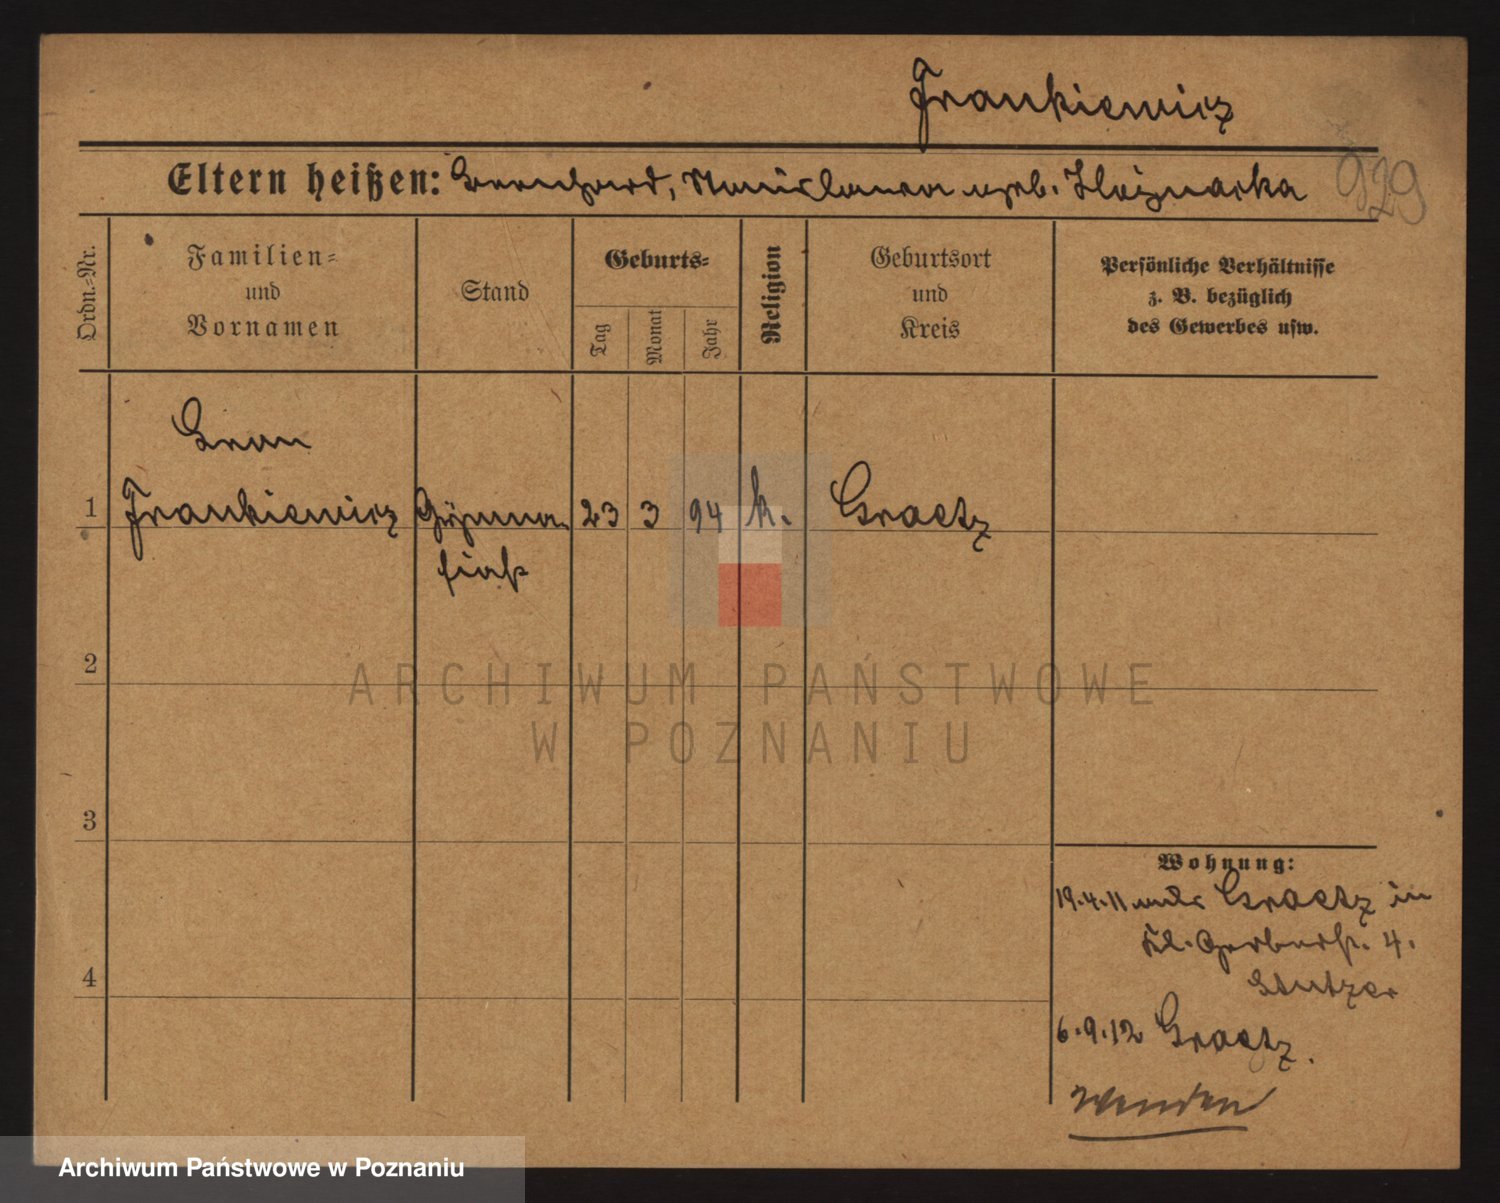 Frankiewicz
Eltern heißen: Bernhard, Stanislawa geb.
929
Ordn.=Nr.
Familien=
und
Vornamen
Stand
Geburts=
Tag
Monat
Jahr
Religion
Geburtsort
und
Kreis
Persönliche Verhältnisse
z. B. bezüglich
des Gewerbes usw.
1
Frankiewicz
Gymna-
siast
23
3
94
k.
Graetz
2
3
4
Wohnung:
19.4.11 Graetz in
Kl. Gerberst. 4.
Stutzer
6.9.12 Graetz.
Wenden
ARCHIWUM PAŃSTWOWE
W POZNANIU
Archiwum Państwowe w Poznaniu